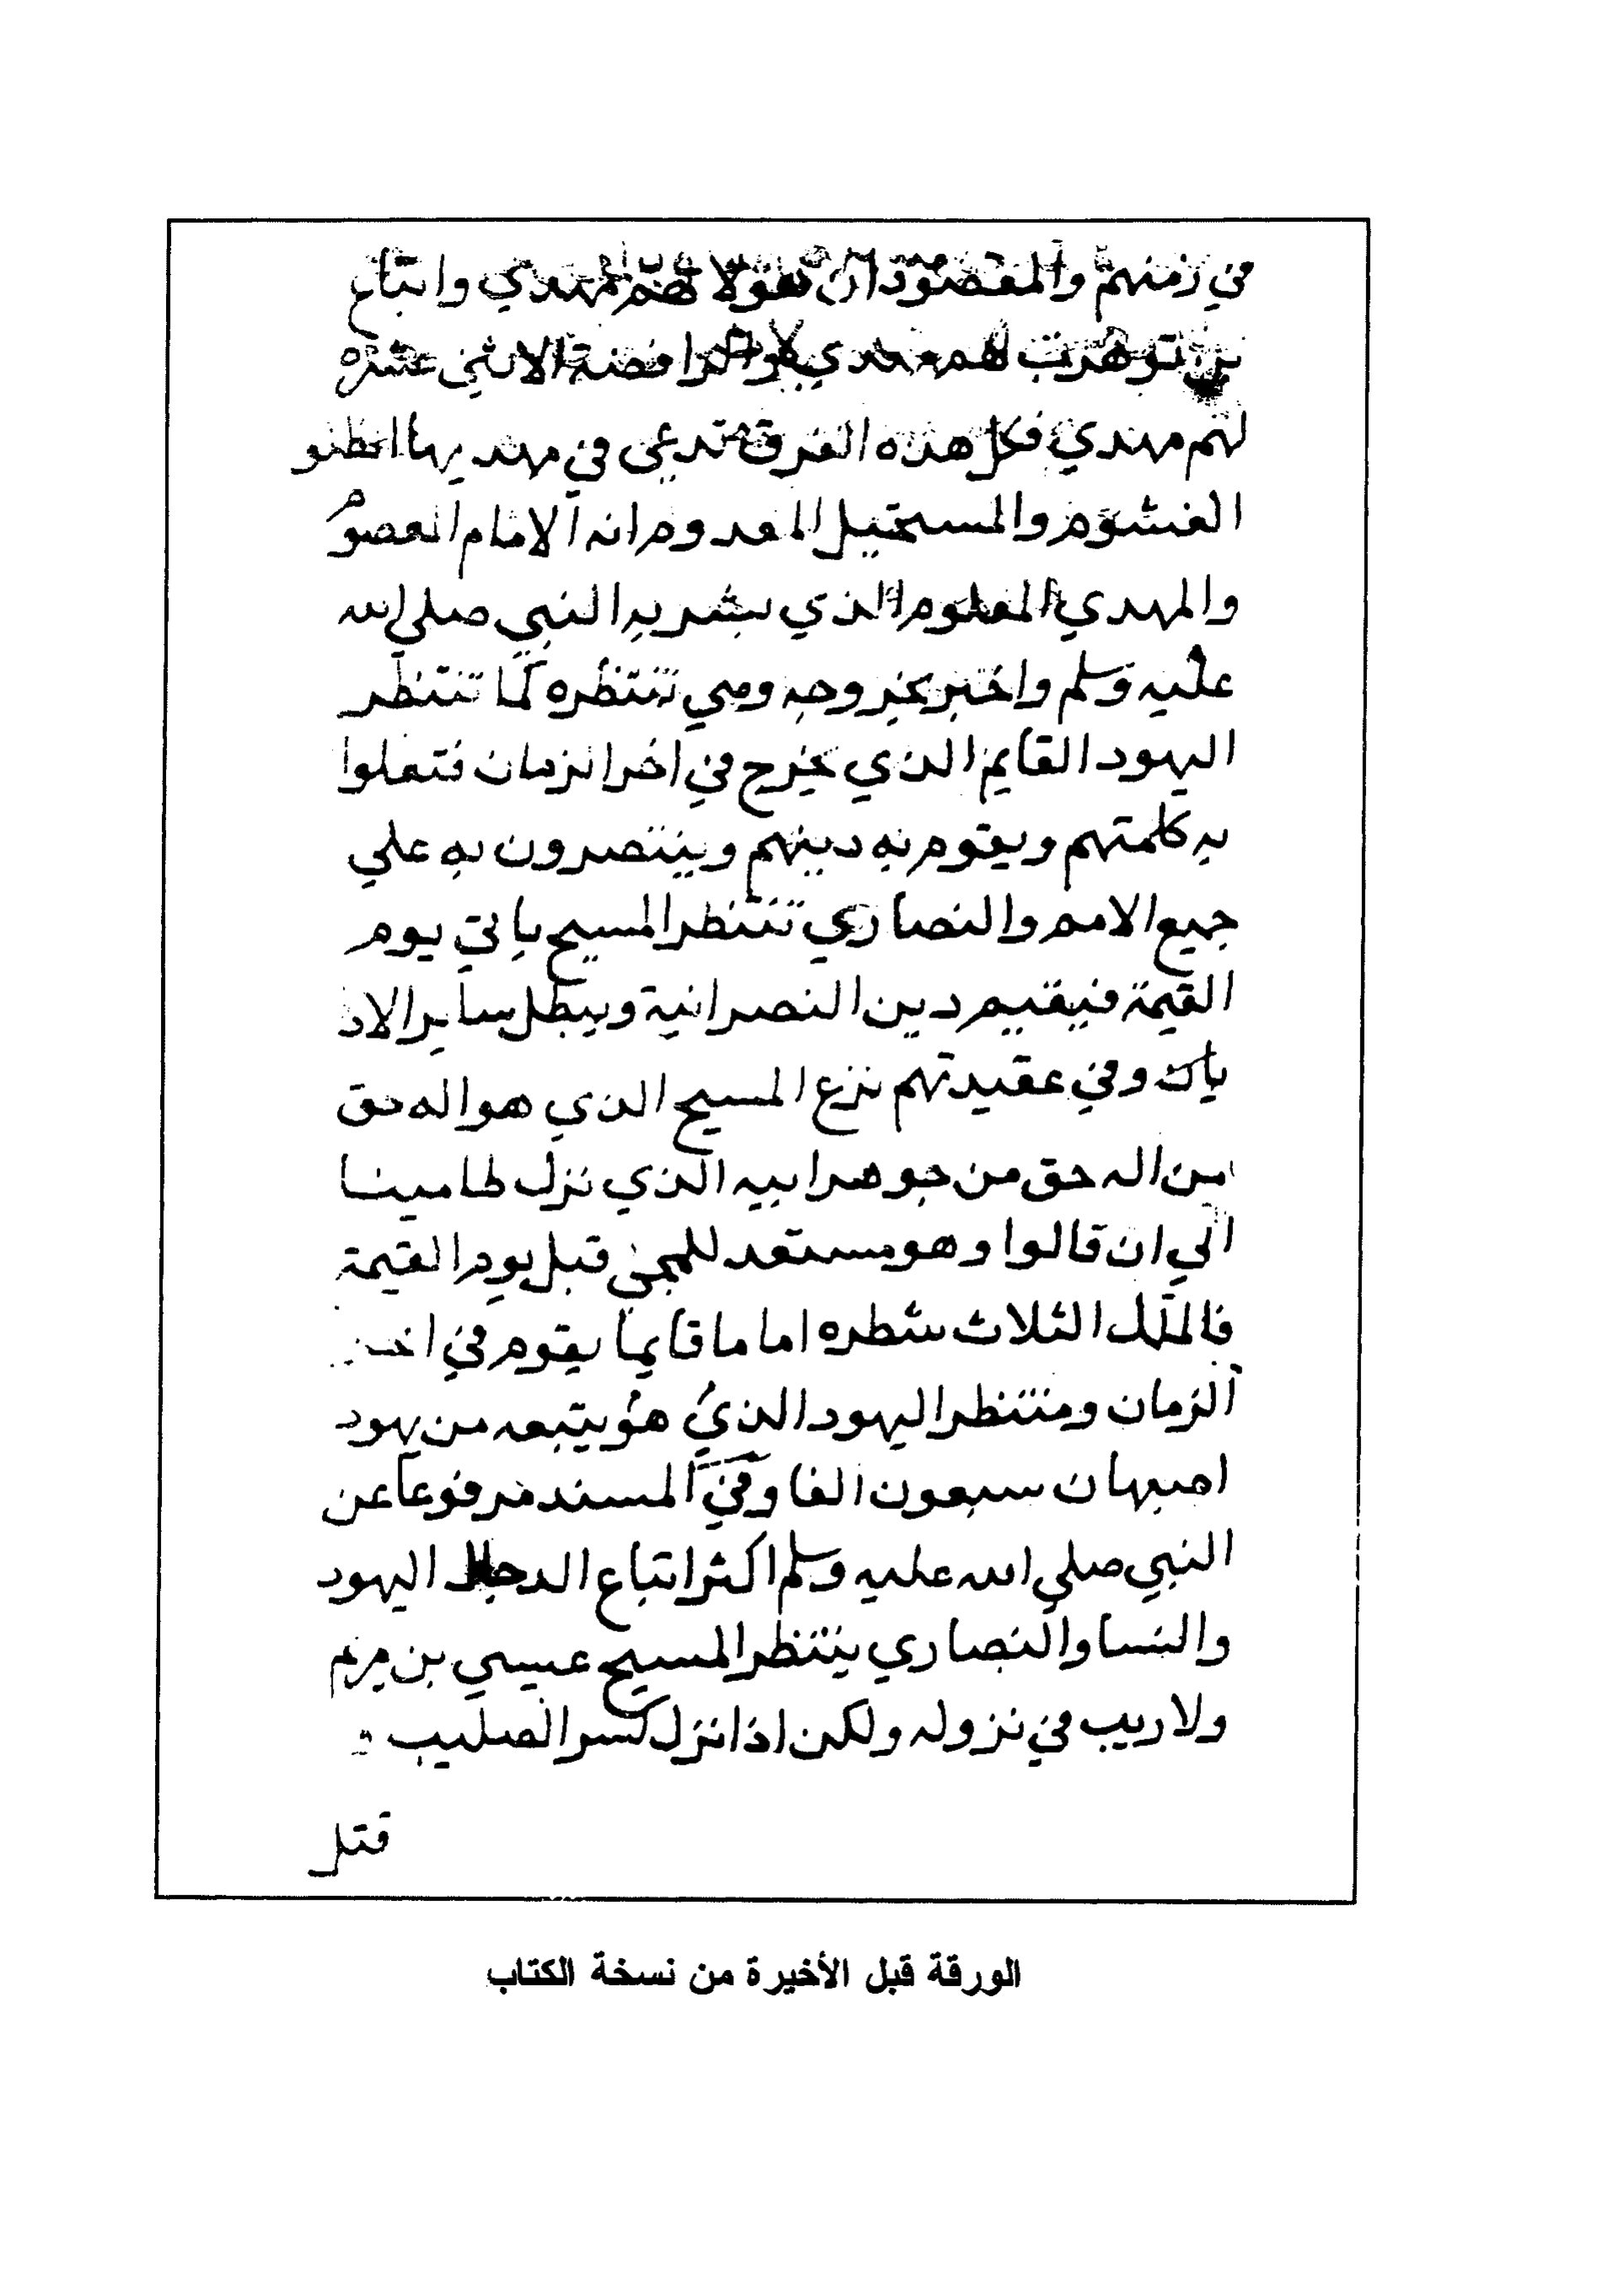 في زمنهم والمقصود ان هؤلا لهم مهدي واتباع
بن تومرت لهم مهدي والرافضة الاثني عشره
لهم مهدي فكل هذه الفرق تدعي في مهديها الظلو
الغشوم والمستحيل المعدوم انه الامام المعصوم
والمهدي المعلوم الذي بشر به النبي صلي الله
عليه وسلم واخبر بخروجه وهي تنتظره كما تنتظر
اليهود القايم الذي يخرج في اخر الزمان فتعلوا
به كلمتهم ويقوم به دينهم وينتصرون به علي
جميع الامم والنصاري تنتظر المسيح ياتي يوم
القيمة فيقيم دين النصرانية ويبطل ساير الاد
يان وفي عقيدتهم نزع المسيح الذي هو اله حق
من اله حق من جوهر ابيه الذي نزل طامينا
الي ان قالوا وهو مستعد للمجئ قبل يوم القيمة
فالملل الثلاث تنتظره اماما قايما يقوم في اخر
الزمان ومنتظر اليهود الذي هؤ يتبعه من يهود
اصبهان سبعون الفا وفي المسند مرفوعا عن
النبي صلي الله عليه وسلم اكثر اتباع الدجال اليهود
والنسا والنصاري ينتظر المسيح عيسي بن مريم
ولا ريب في نزوله ولكن اذا نزل كسر الصليب و
قتل
الورقة قبل الأخيرة من نسخة الكتاب